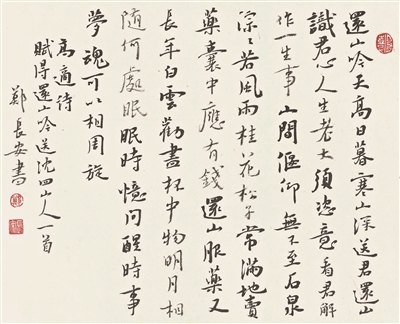 還山吟天高日暮寒山深送君還山
識君心人生老大須恣意看君解
作一生事山間偃仰無不至石泉
淙〻若風雨桂花松子常滿地賣
藥囊中應有錢還山服藥又
長年白雲勸盡杯中物明月相
隨何處眠眠時憶問醒時事
夢魂可以相周旋
高適詩
賦得還山吟送沈四山人一首
鄭長安書